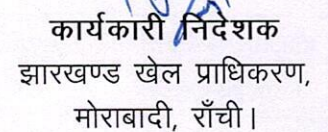 कार्यकारी निदेशक
झारखण्ड खेल प्राधिकरण,
मोराबादी, राँची।